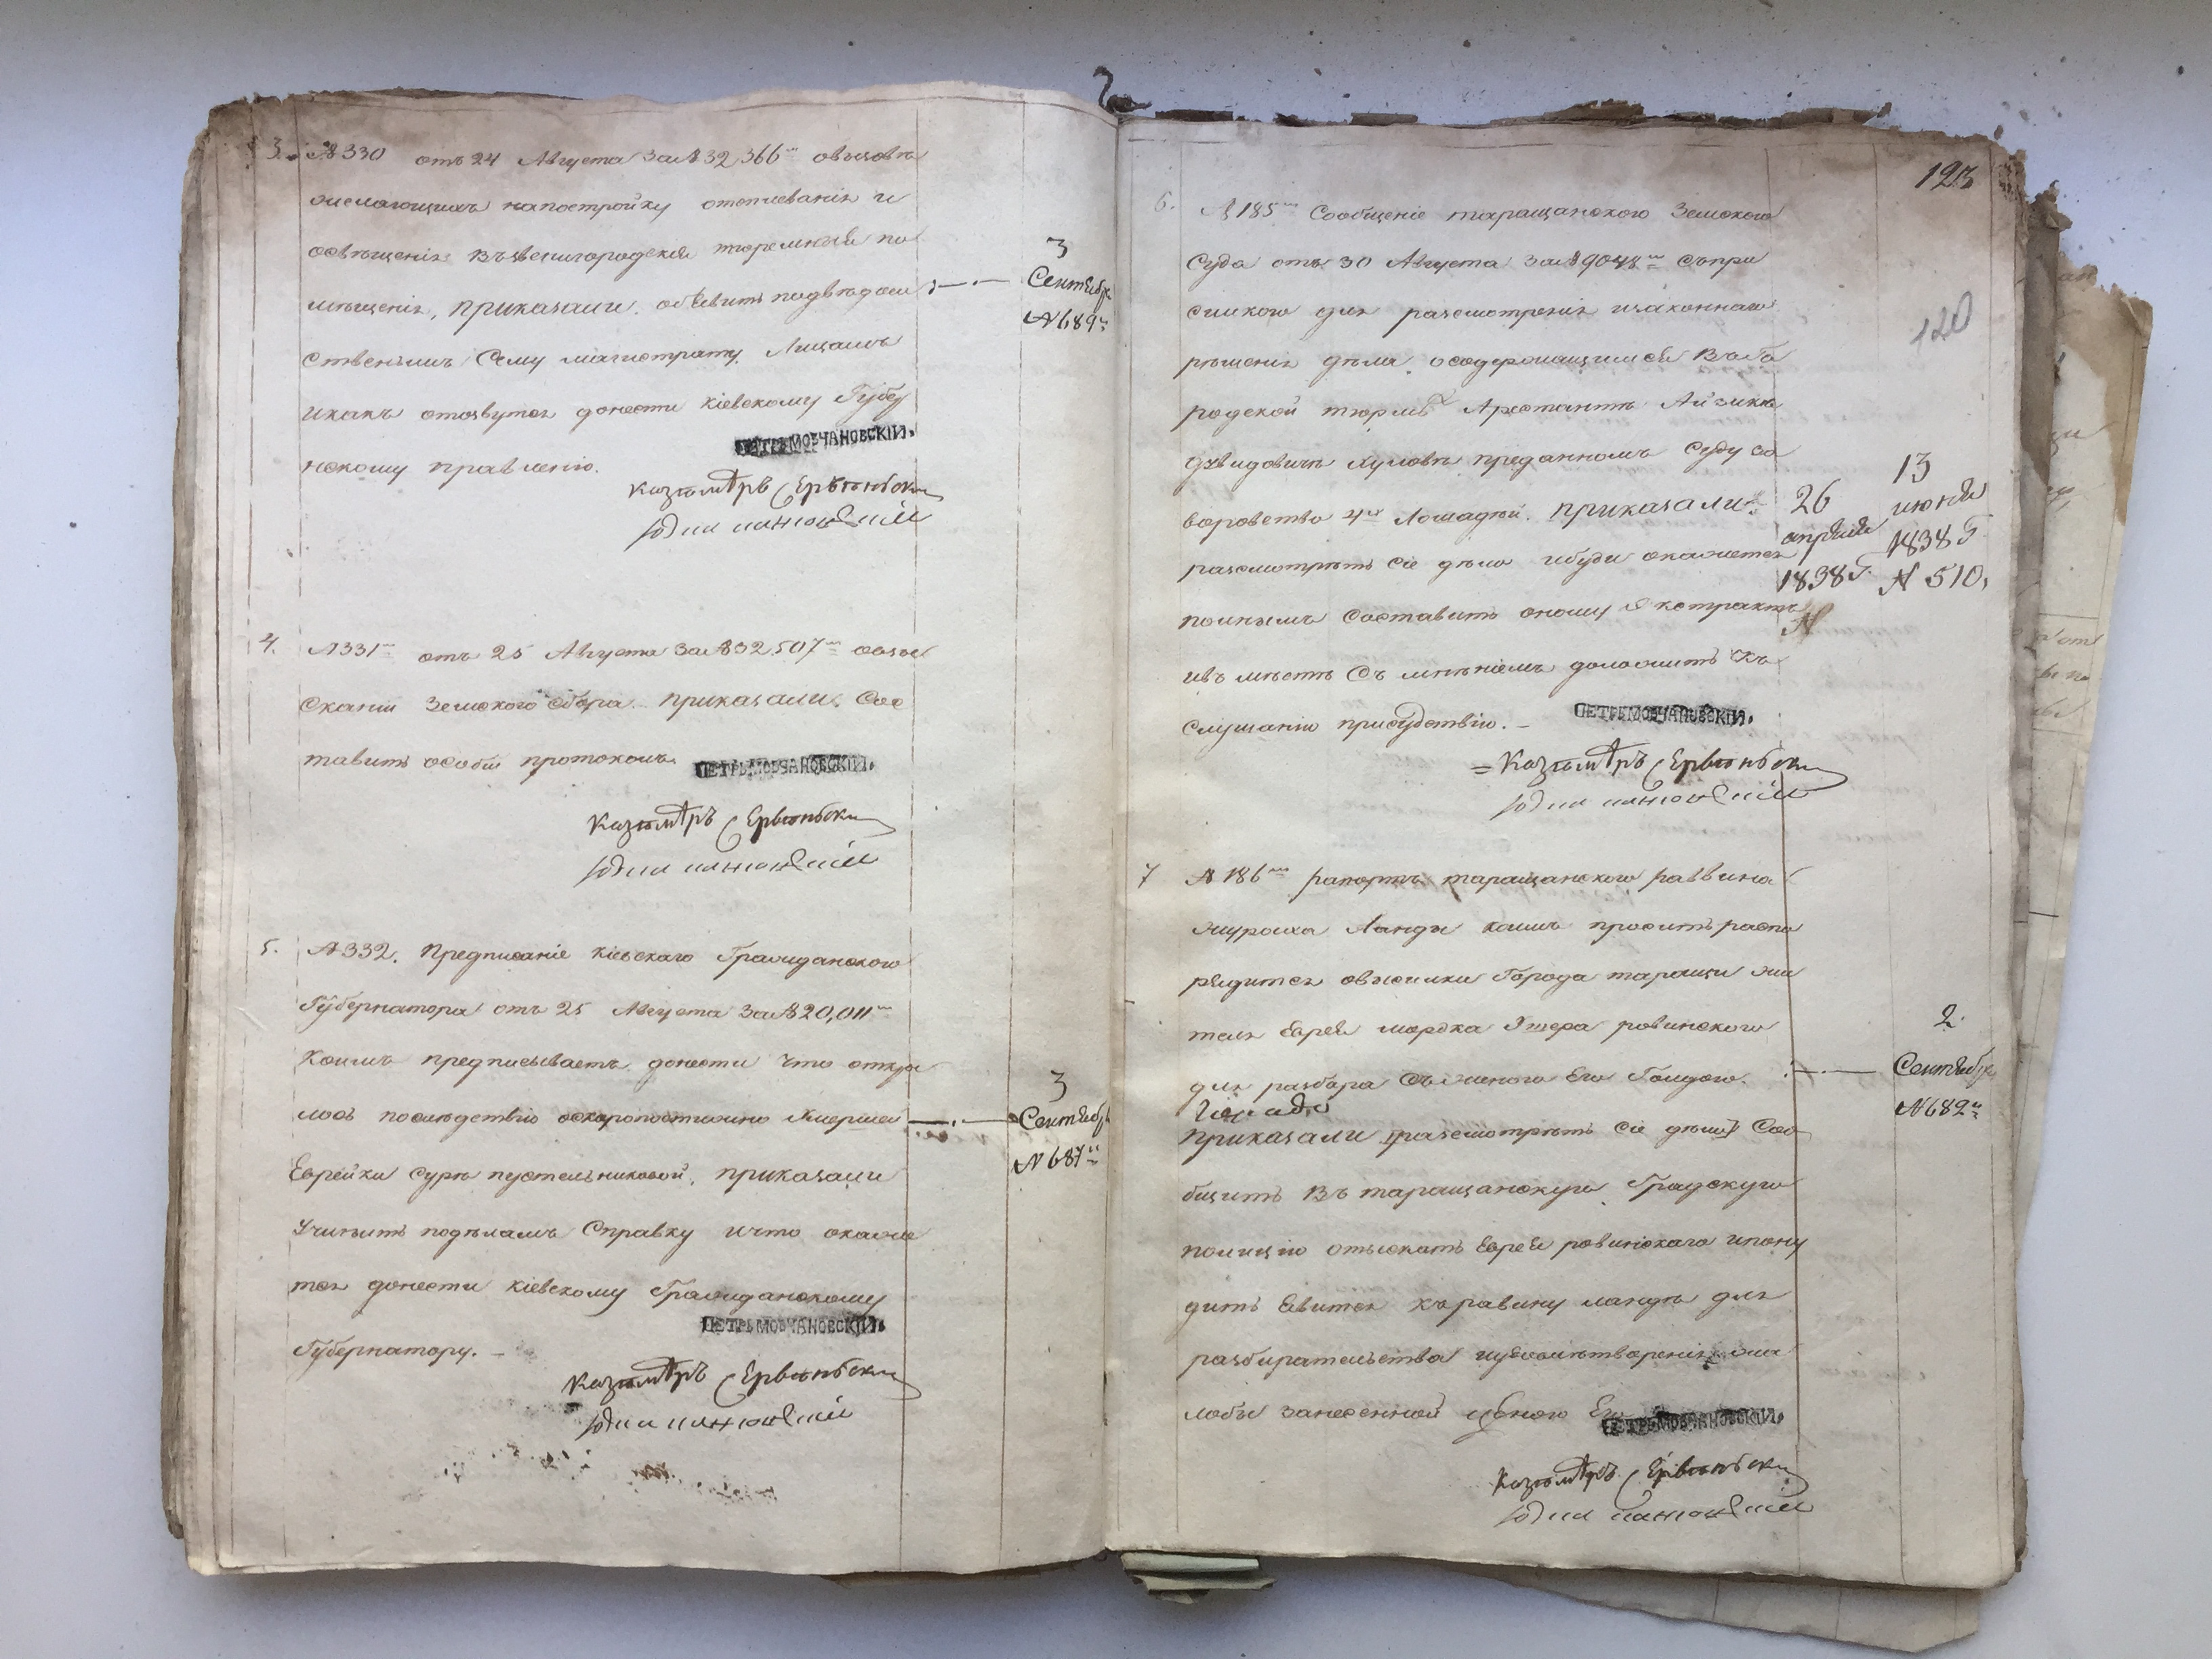 3. №330 отъ 24 Августа за №32,366м овызовѣ
желающихъ напостройку отопливанія и
освѣщенія въ звенигородской тюремный по
мѣщенія, приказали. объявить подвѣдом
ственнымъ Сему магистрату Лицамъ
икакъ отзвутся донести кіевскому Губер
нскому правленію.
ПЕТРЪ МОВЧАНОВСКІЙ.
3
Сентября
№689м
4. №331м отъ 25 Августа за №32,507м овзы
сканіи Земского Сбора. приказали. Сос
тавить особій протоколъ.
ПЕТРЪ МОВЧАНОВСКІЙ.
5. №332. Предписаніе кіевскаго Гражданского
Губернатора отъ 25 Августа за №20,011м
коимъ предписываетъ донести что откры
лось послѣдствію оскоропостижно Умершей
Еврейки Суры пустельниковой, приказали
Учинить подѣламъ Справку ичто окаже
тся донести кіевскому Гражданскому
Губернатору. –
ПЕТРЪ МОВЧАНОВСКІЙ.
3
Сентября
№687м
123
120
6. №185м Сообщеніе таращанского Земского
Суда отъ 30 Августа за №9044м Съпри
сылкою для разсмотренія изаконнаго
рѣшенія дѣла осодержащимся въ Го
родской тюрмѣ Арестантѣ Айзикѣ
преданномъ Суду за
воровство 4хъ Лошадей. приказали:
разсмотрѣть Сіе дѣло ибуди окажется
полнымъ Составить оному Экстрактъ
ивъ мѣстѣ Съ мнѣніемъ доложить къ
Слушанію присудствію. –
ПЕТРЪ МОВЧАНОВСКІЙ.
26
апрѣля
1838 Г.
№
13
июня
1838 Г
№ 510.
7 №186м рапортъ таращанского раввина
Ланды коимъ проситъ распо
рядится овысылки Города таращи жи
теля Еврея мордка Ушера ровинского
для разбора Съ женою Его Голдою.
приказали разсмотрѣть Сіе дѣло Соо
бщить въ таращанскую Градскую
полицію отыскать Еврея ровинскаго ипону
дить Явится къравину ландѣ для
разбирательства иудовлѣтворенія жа
лобы занесенной женою Его
ПЕТРЪ МОВЧАНОВСКІЙ.
2
Сентября
№682м